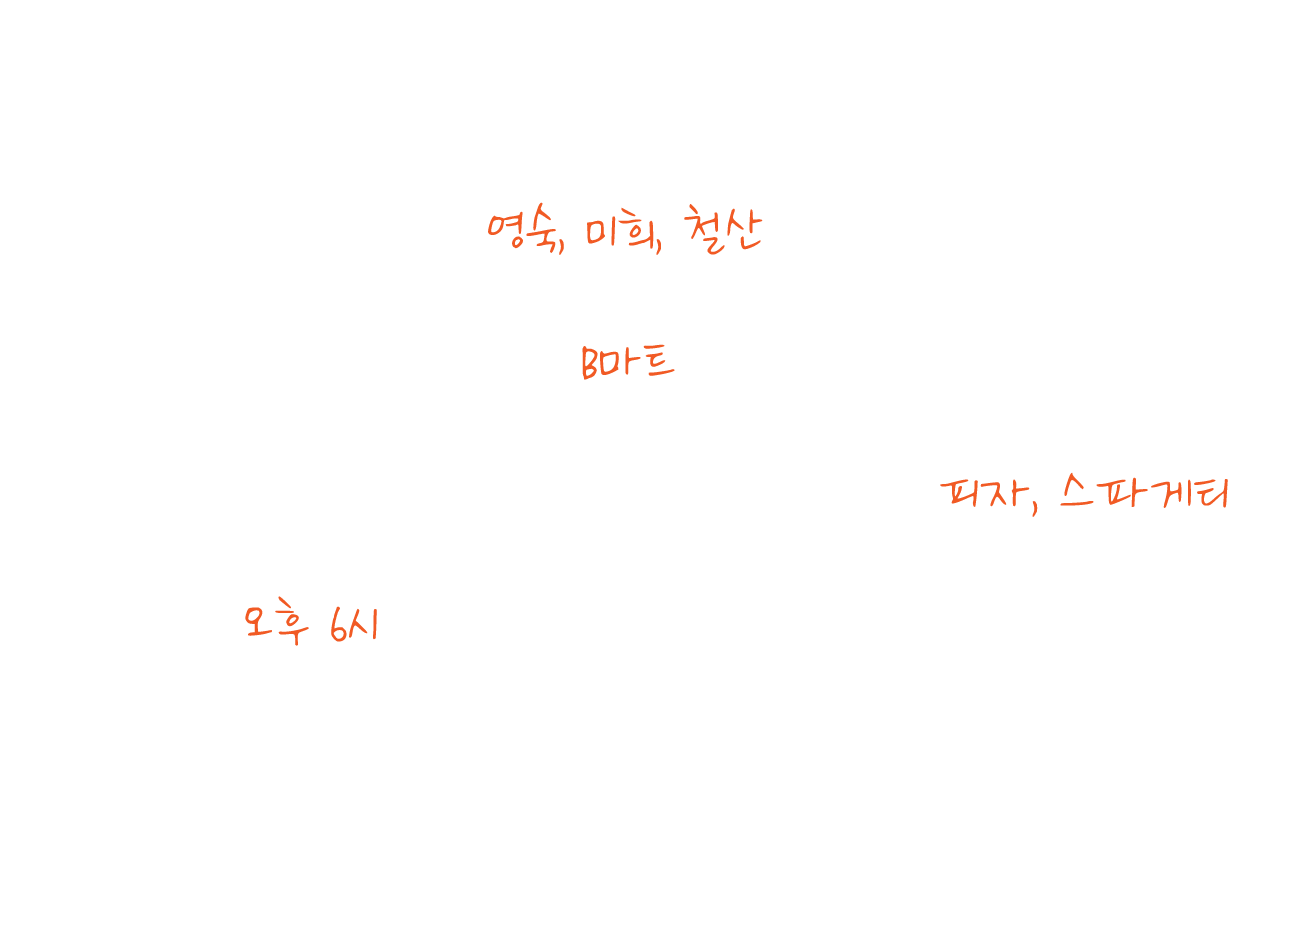 영숙, 미희, 철산
B마트
피자, 스파게티
오후 6시